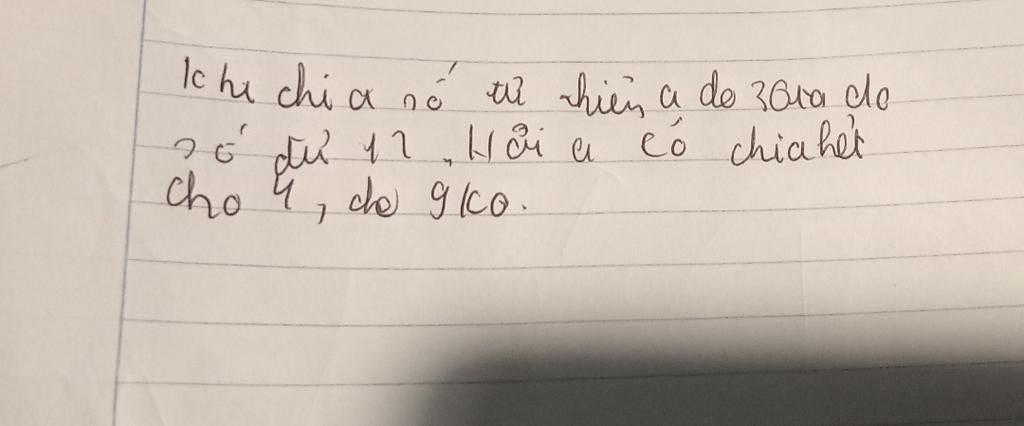 Khi chia số tự nhiên a cho 36 ta đc
số dư 12. Hỏi a có chia hết
cho 4, cho 9 ko.